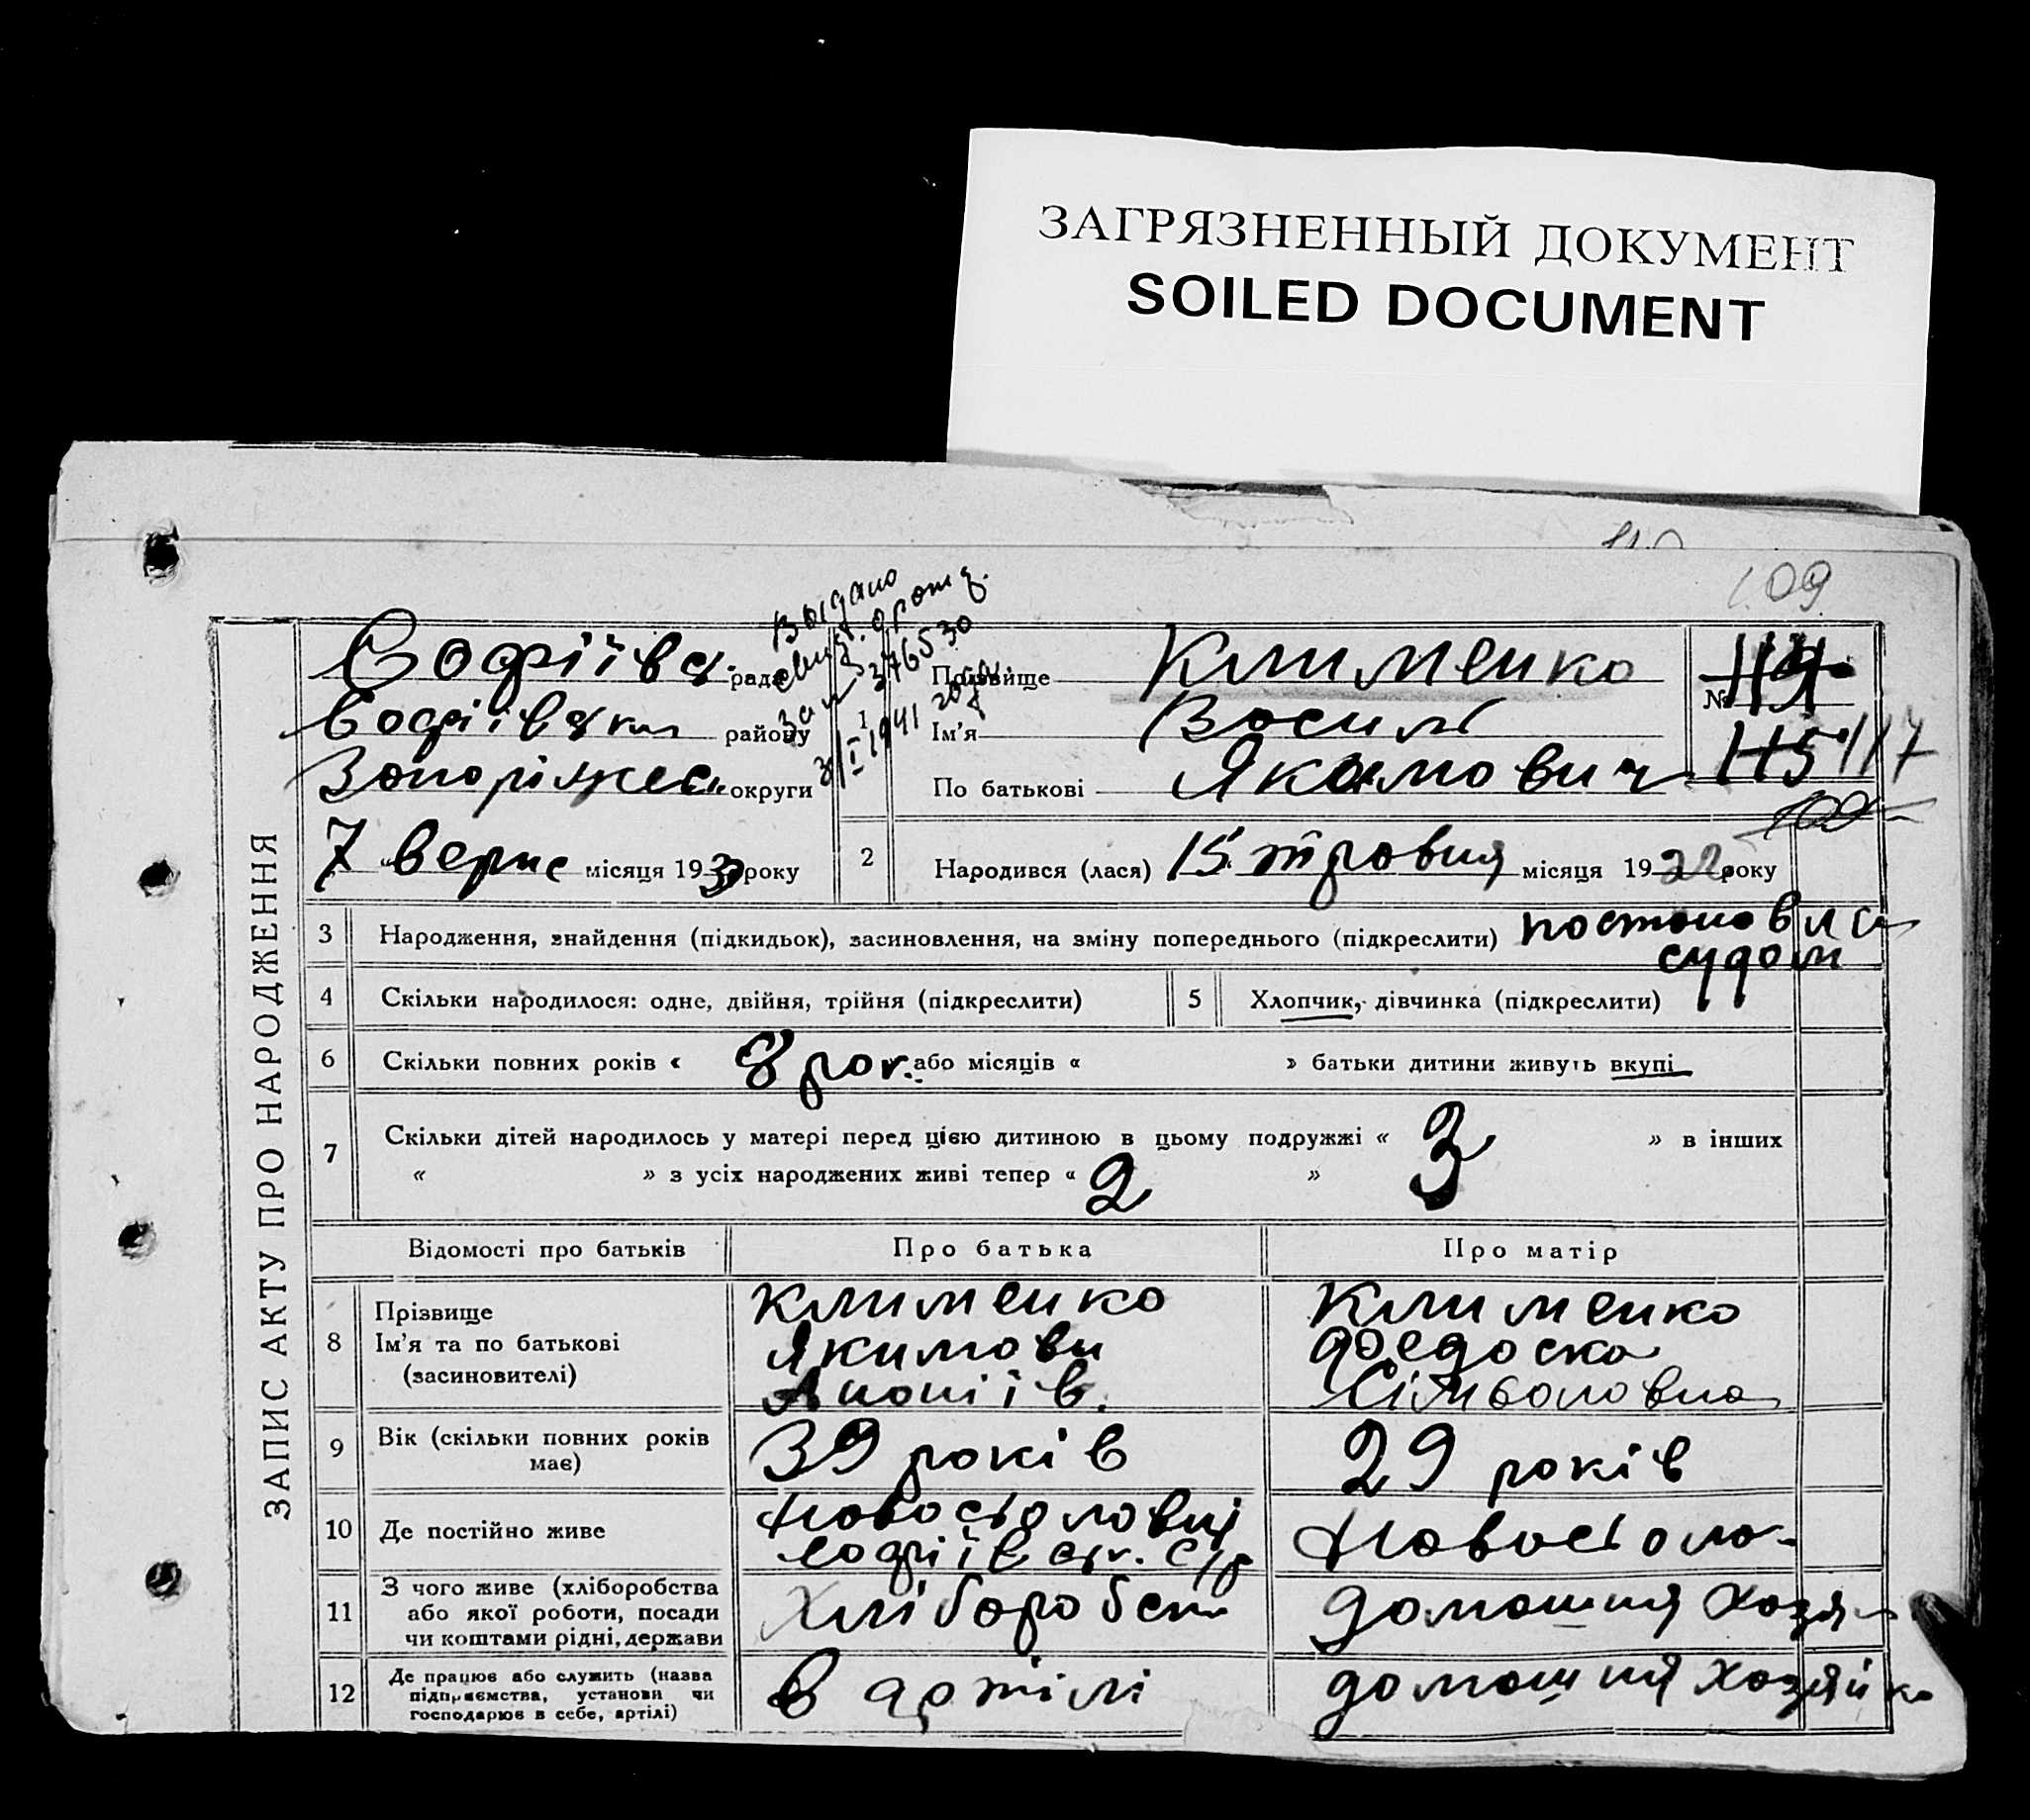 ЗАГРЯЗНЕННЫЙ ДОКУМЕНТ
SOILED DOCUMENT
109
ЗАПИС АКТУ ПРО НАРОДЖЕННЯ
Софіївськ. рада
Софіївськ району
Запоріжськ округи
7 „верес місяця 1930 року
Выдано
свид.
за № 376530
3/I 1941 года
1
Прізвище Клименко
Ім'я Василь
По батькові Якимович
№ 114
115 117
109
2 Народився (лася) 15 травня місяця 1922 року
3 Народження, знайдення (підкидьок), засиновлення, на зміну попереднього (підкреслити) постановл.
судом
4 Скільки народилося: одне, двійня, трійня (підкреслити)
5 Хлопчик, дівчинка (підкреслити)
6 Скільки повних років « 8 рок. або місяців « » батьки дитини живуть вкупі
7 Скільки дітей народилось у матері перед цією дитиною в цьому подружжі « 3 » в інших
« » з усіх народжених живі тепер « 2 »
Відомості про батьків Про батька Про матір
8 Прізвище
Ім'я та по батькові
(засиновителі)
Клименко
Якимови
Клименко
9 Вік (скільки повних років
має)
39 років
29 років
10 Де постійно живе
Софіївськ. с/р
11 З чого живе (хліборобства
або якої роботи, посади
чи коштами рідні, держави
Хліборобст
домашня хозяй
12 Де працює або служить (назва
підприємства, установи чи
господарює в себе, артілі)
в артілі
домашня хозяйка